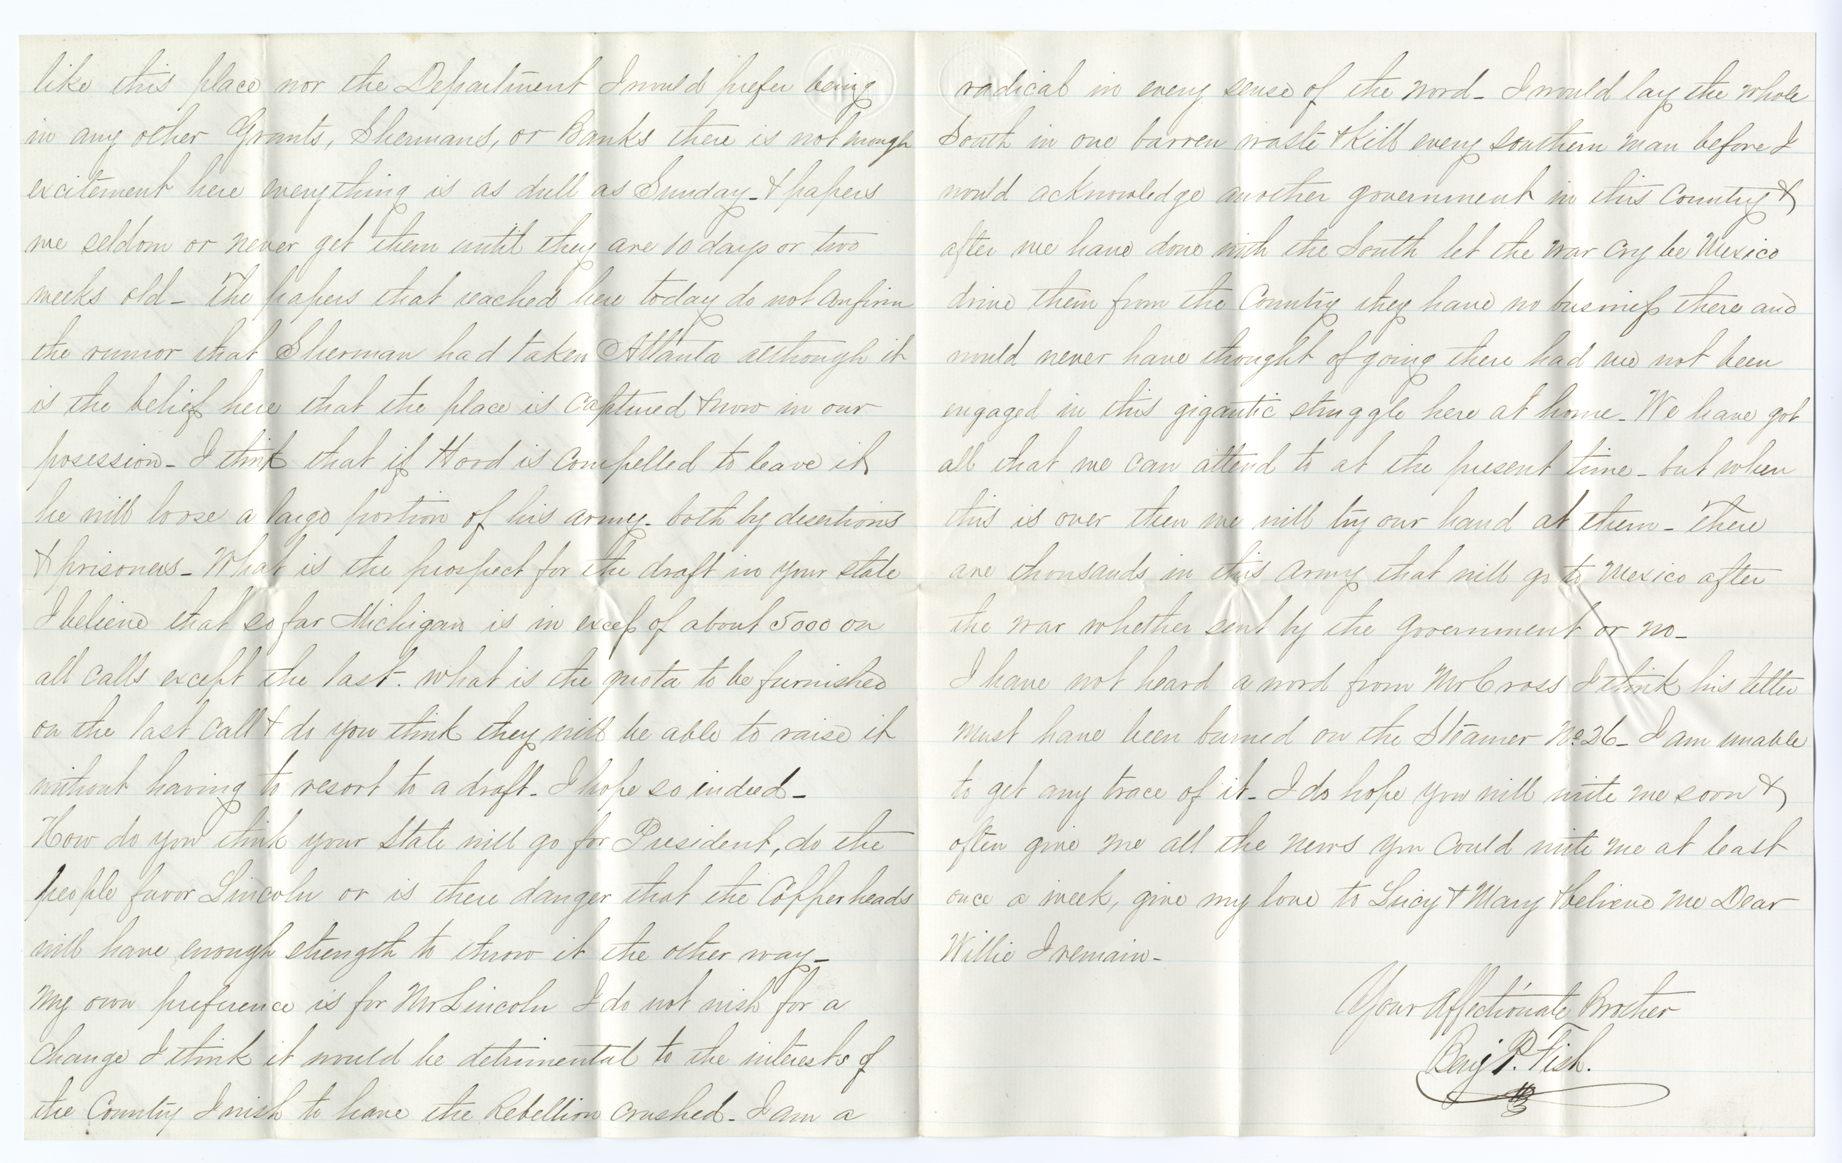 like this place nor the Department I would prefer being
in any other Grants, Shermans, or Banks there is not enough
excitement here everything is as dull as Sunday - & papers
we seldom or never get them until they are 10 days or two
weeks old - The papers that reached here today do not confirm
the rumor that Sherman had taken Atlanta although it
is the belief here that the place is captured & now in our
posession - I think that if Hood is compelled to leave it,
he will loose a large portion of his army - both by desertions
& prisoners - What is the prospect for the draft in your state
I believe that so far Michigan is in excess of about 5000 on
all calls except the last. what is the quota to be furnished
on the last call & do you think they will be able to raise it
without having to resort to a draft - I hope so indeed -
How do you think your State will go for President, do the
people favor Lincoln or is there danger that the Copperheads
will have enough strength to throw it the other way -
My own preference is for Mr Lincoln I do not wish for a
change I think it would be detrimental to the interests of
the Country I wish to have the Rebellion crushed - I am a
radical in every sense of the word - I would lay the whole
South in one barren waste & kill every southern man before I
would acknowledge another government in this Country &
after we have done with the South let the war cry be Mexico
drive them from the Country they have no business there and
would never have thought of going there had we not been
engaged in this gigantic struggle here at home - We have got
all that we can attend to at the present time - but when
this is over then we will try our hand at them - There
are thousands in this Army that will go to Mexico after
the war whether sent by the government or no -
I have not heard a word from Mr Cross I think his letter
must have been burned on the Steamer No 26 - I am unable
to get any trace of it - I do hope you will write me soon &
often give me all the news you could write me at least
once a week, give my love to Lucy & Mary & believe me Dear
Willie I remain -
Your Affectionate Brother
Benj P. Fish.